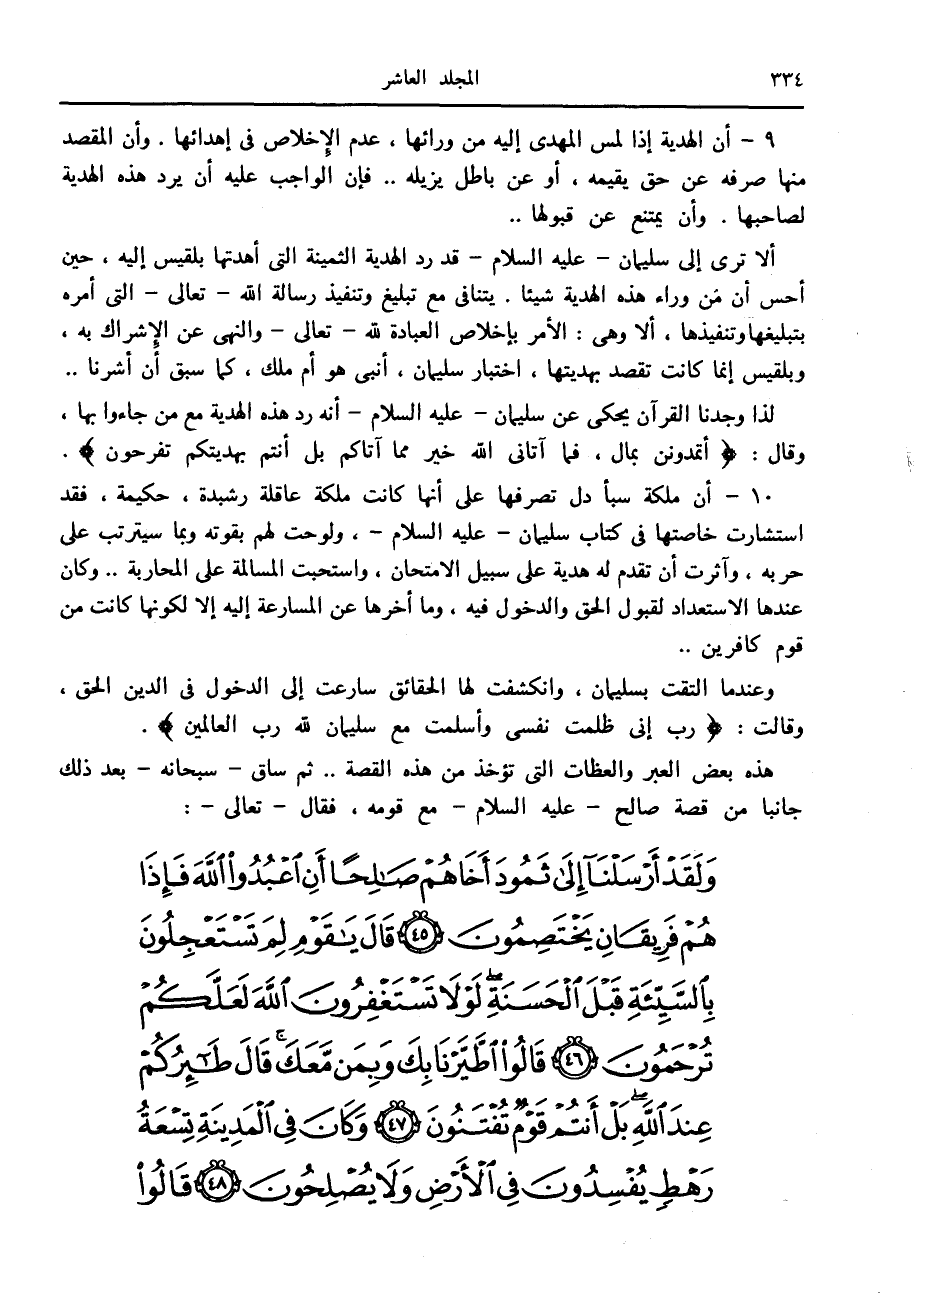 ٣٣٤ المجلد العاشر
٩ - أن الهدية إذا لمس المهدى إليه من ورائها ، عدم الإِخلاص فى إهدائها . وأن المقصد
منها صرفه عن حق يقيمه ، أو عن باطل يزيله .. فإن الواجب عليه أن يرد هذه الهدية
لصاحبها . وأن يمتنع عن قبولها ..
ألا ترى إلى سليمان - عليه السلام - قد رد الهدية الثمينة التى أهدتها بلقيس إليه ، حين
أحس أن مَن وراء هذه الهدية شيئا . يتنافى مع تبليغ وتنفيذ رسالة الله - تعالى - التى أمره
بتبليغها وتنفيذها ، ألا وهى : الأمر بإخلاص العبادة لله - تعالى - والنهى عن الإِشراك به ،
وبلقيس إنما كانت تقصد بهديتها ، اختبار سليمان ، أنبى هو أم ملك ، كما سبق أن أشرنا ..
لذا وجدنا القرآن يحكى عن سليمان - عليه السلام - أنه رد هذه الهدية مع من جاءوا بها ،
وقال : ﴿ أتمدونن بمال ، فما آتانى الله خير مما آتاكم بل أنتم بهديتكم تفرحون ﴾ .
١٠ - أن ملكة سبأ دل تصرفها على أنها كانت ملكة عاقلة رشيدة ، حكيمة ، فقد
استشارت خاصتها فى كتاب سليمان - عليه السلام - ، ولوحت لهم بقوته وبما سيترتب على
حربه ، وآثرت أن تقدم له هدية على سبيل الامتحان ، واستحبت المسالمة على المحاربة .. وكان
عندها الاستعداد لقبول الحق والدخول فيه ، وما أخرها عن المسارعة إليه إلا لكونها كانت من
قوم كافرين ..
وعندما التقت بسليمان ، وانكشفت لها الحقائق سارعت إلى الدخول فى الدين الحق ،
وقالت : ﴿ رب إنى ظلمت نفسى وأسلمت مع سليمان لله رب العالمين ﴾ .
هذه بعض العبر والعظات التى تؤخذ من هذه القصة .. ثم ساق - سبحانه - بعد ذلك
جانبا من قصة صالح - عليه السلام - مع قومه ، فقال - تعالى - :
وَلَقَدْ أَرْسَلْنَآ إِلَىٰ ثَمُودَ أَخَاهُمْ صَـٰلِحًا أَنِ ٱعْبُدُوا۟ ٱللَّهَ فَإِذَا
هُمْ فَرِيقَانِ يَخْتَصِمُونَ ﴿٤٥﴾ قَالَ يَـٰقَوْمِ لِمَ تَسْتَعْجِلُونَ
بِٱلسَّيِّئَةِ قَبْلَ ٱلْحَسَنَةِ ۖ لَوْلَا تَسْتَغْفِرُونَ ٱللَّهَ لَعَلَّكُمْ
تُرْحَمُونَ ﴿٤٦﴾ قَالُوا۟ ٱطَّيَّرْنَا بِكَ وَبِمَن مَّعَكَ ۚ قَالَ طَـٰٓئِرُكُمْ
عِندَ ٱللَّهِ ۖ بَلْ أَنتُمْ قَوْمٌ تُفْتَنُونَ ﴿٤٧﴾ وَكَانَ فِى ٱلْمَدِينَةِ تِسْعَةُ
رَهْطٍ يُفْسِدُونَ فِى ٱلْأَرْضِ وَلَا يُصْلِحُونَ ﴿٤٨﴾ قَالُوا۟